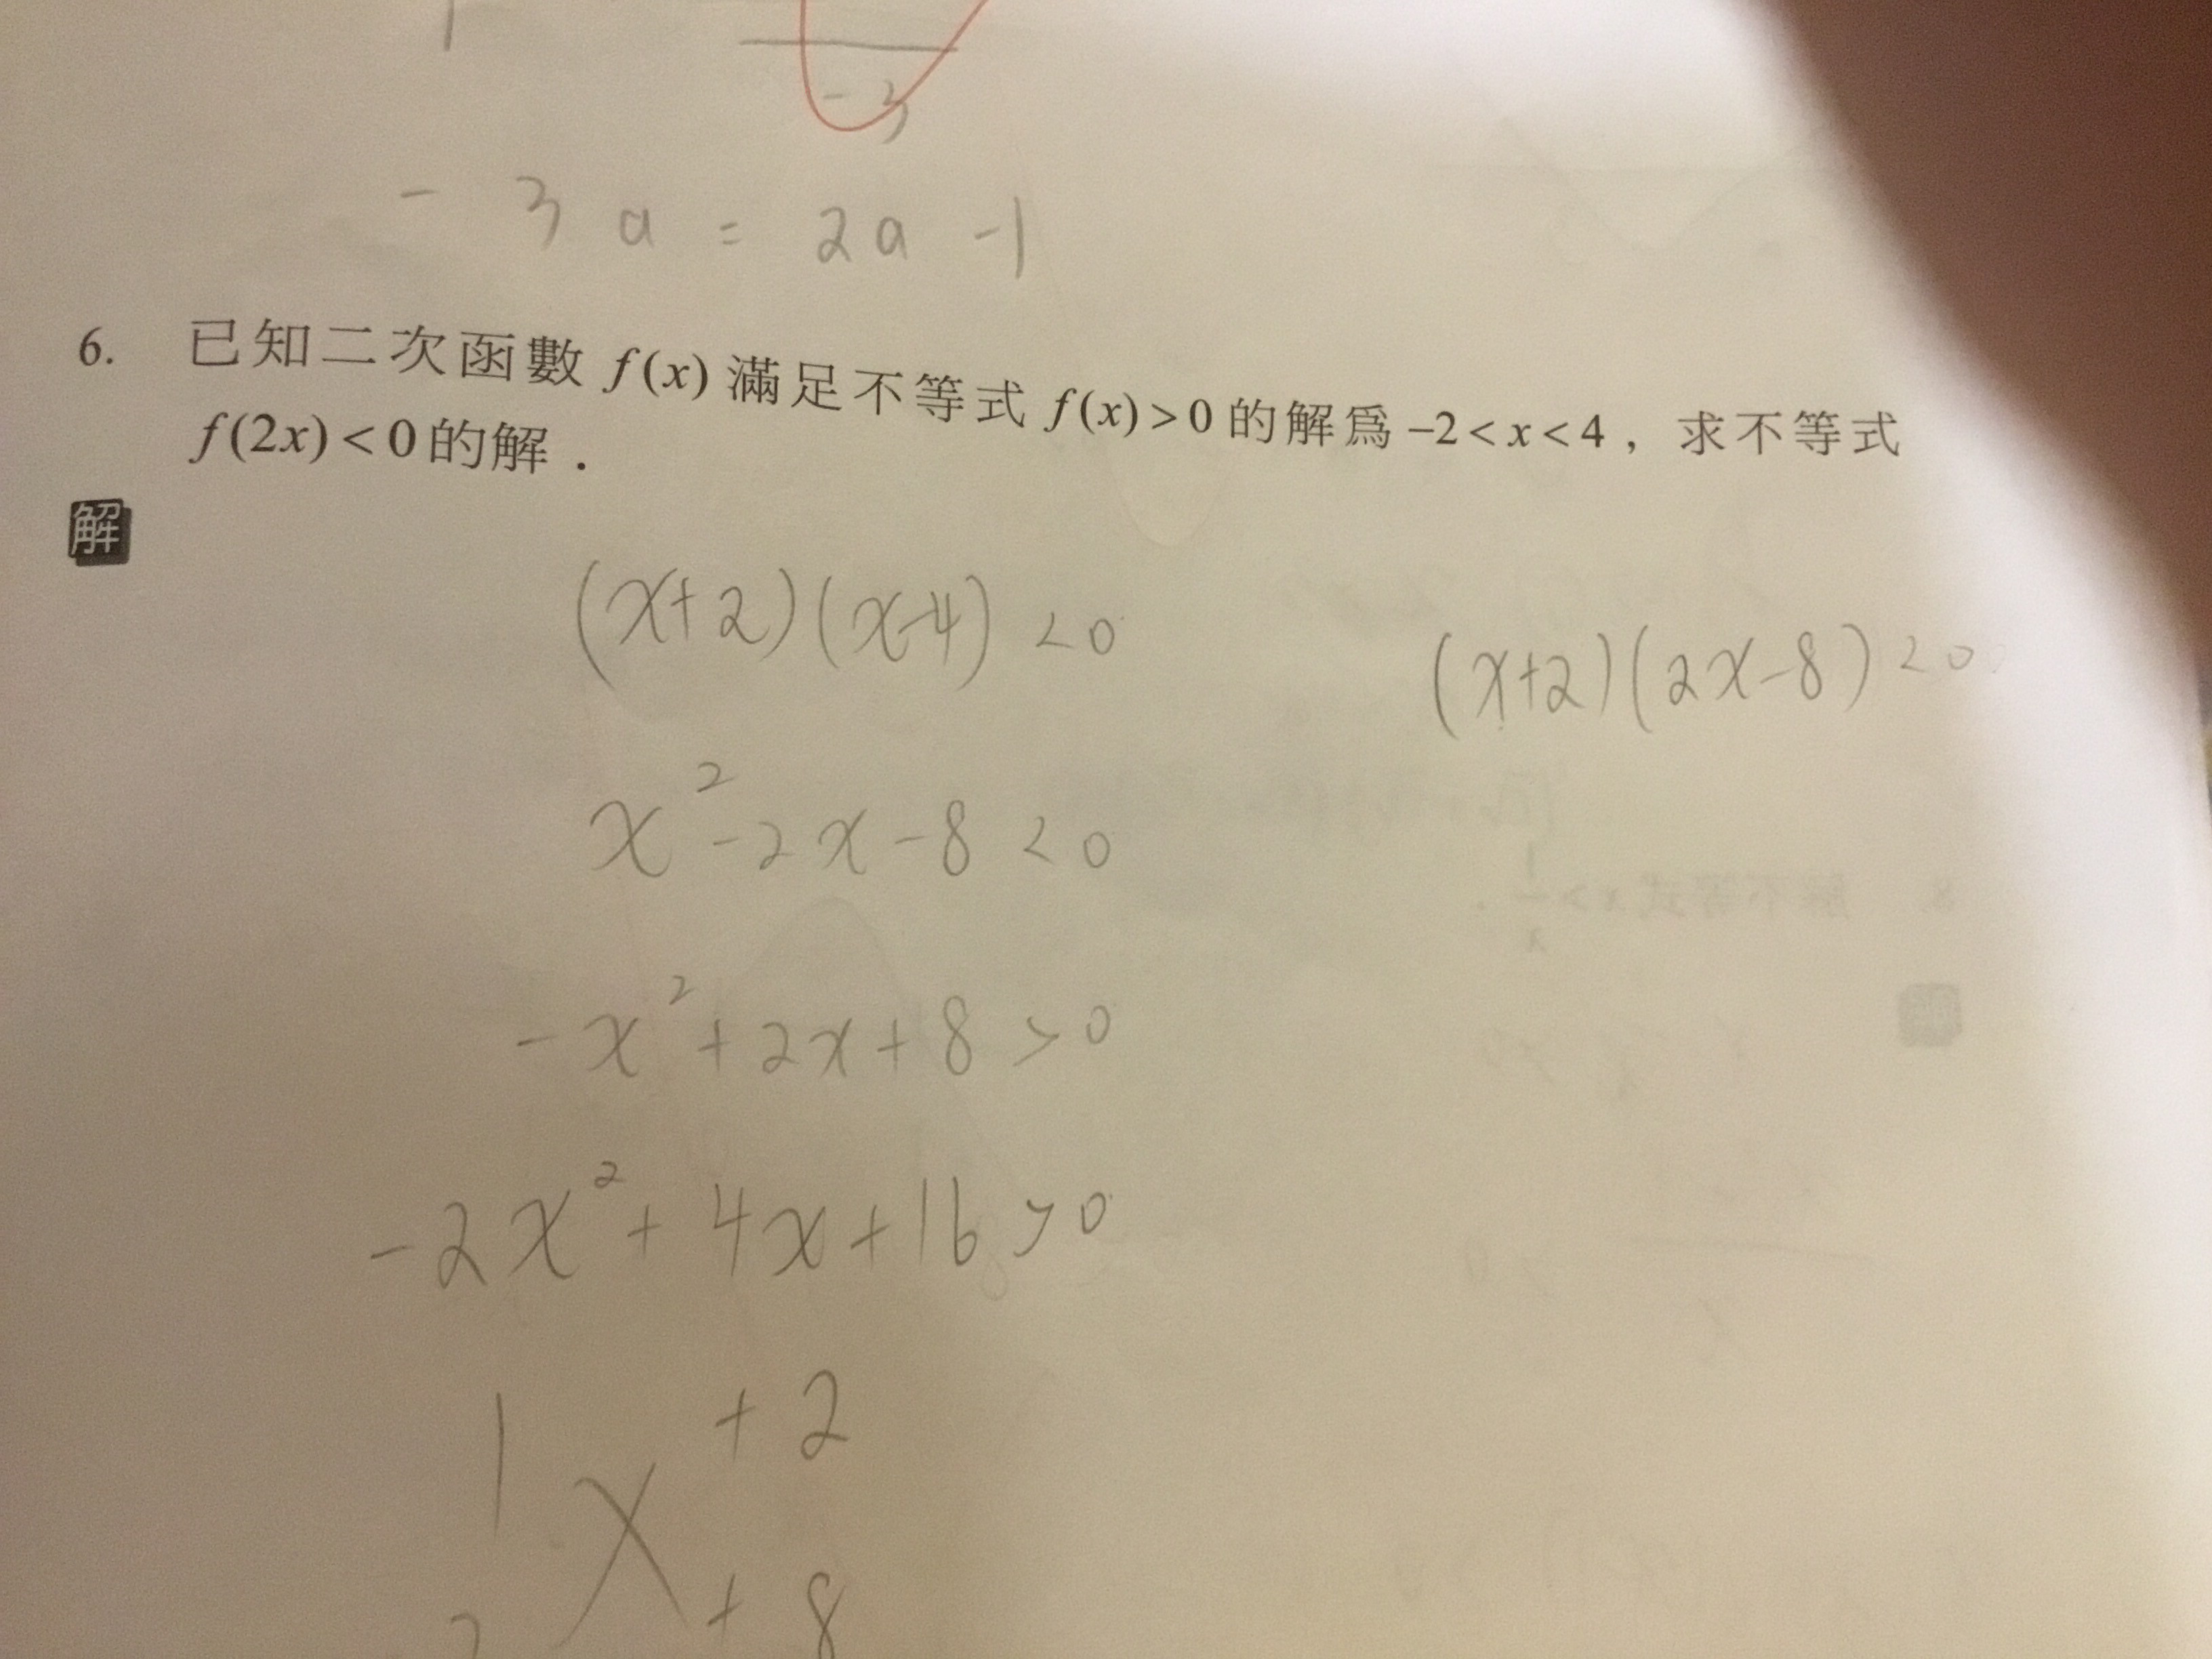 - 3
- 3 a = 2a - 1
6. 已知二次函數 f(x) 滿足不等式 f(x) > 0 的解爲 −2 < x < 4，求不等式
f(2x) < 0 的解．
解
(x+2)(x-4) < 0
(x+2)(2x-8) < 0
x² - 2x - 8 < 0
- x² + 2x + 8 > 0
- 2x² + 4x + 16 > 0
1 + 2
+ 8